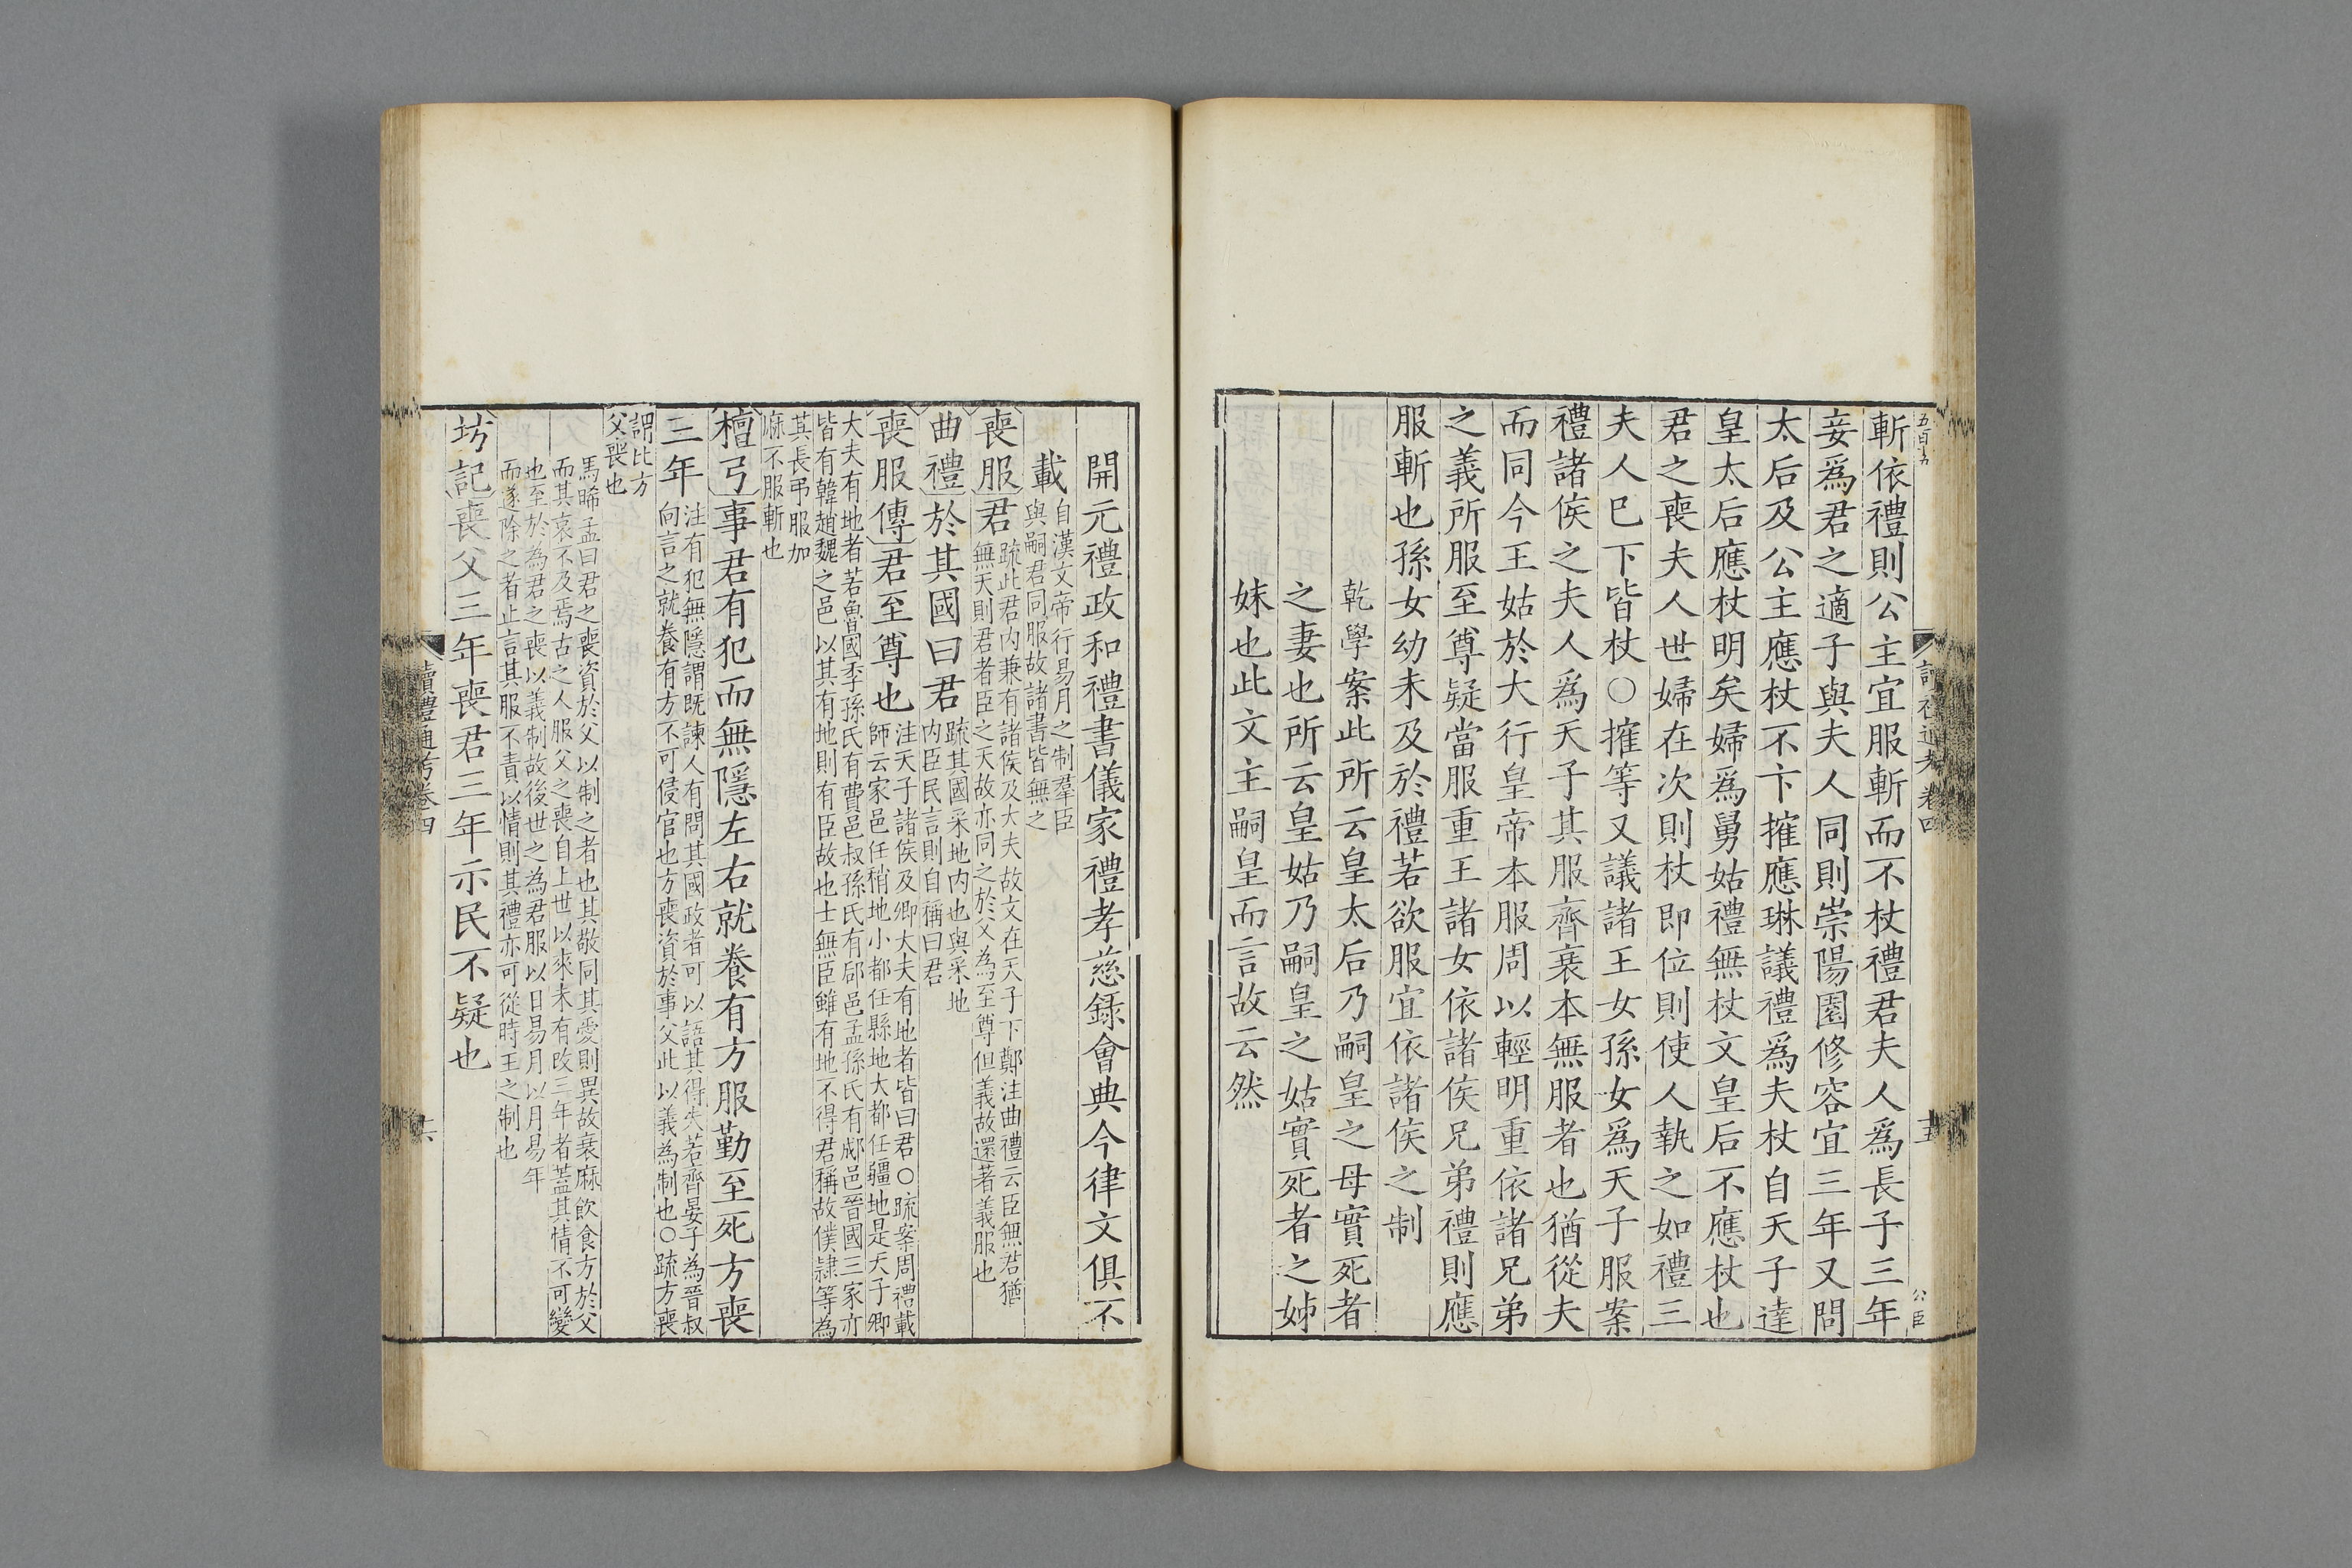 斬依禮則公主宜服斬而不杖禮君夫人爲長子三年
妾爲君之適子與夫人同則崇陽園修容宜三年又問
太后及公主應杖不卞搉應琳議禮爲夫杖自天子達
皇太后應杖明矣婦爲舅姑禮無杖文皇后不應杖也
君之喪夫人世婦在次則杖即位則使人執之如禮三
夫人已下皆杖○搉等又議諸王女孫女爲天子服案
禮諸侯之夫人爲天子其服齊衰本無服者也猶從夫
而同今王姑於大行皇帝本服周以輕明重依諸兄弟
之義所服至尊疑當服重王諸女依諸侯兄弟禮則應
服斬也孫女幼未及於禮若欲服宜依諸侯之制
乾學案此所云皇太后乃嗣皇之母實死者
之妻也所云皇姑乃嗣皇之姑實死者之姊
妹也此文主嗣皇而言故云然
開元禮政和禮書儀家禮孝慈錄會典今律文俱不
載自漢文帝行易月之制羣臣
與嗣君同服故諸書皆無之
喪服君疏此君内兼有諸侯及大夫故文在天子下鄭注曲禮云臣無君猶
無天則君者臣之天故亦同之於父為至尊但義故還著義服也
曲禮於其國曰君疏其國采地内也與采地
内臣民言則自稱曰君
喪服傳君至尊也注天子諸侯及卿大夫有地者皆曰君○疏案周禮載
師云家邑任稍地小都任縣地大都任疆地是天子卿
大夫有地者若魯國季孫氏有費邑叔孫氏有郈邑孟孫氏有郕邑晉國三家亦
皆有韓趙魏之邑以其有地則有臣故也士無臣雖有地不得君稱故僕隸等為
其長弔服加
麻不服斬也
檀弓事君有犯而無隱左右就養有方服勤至死方喪
三年注有犯無隱謂既諫人有問其國政者可以語其得失若齊晏子為晉叔
向言之就養有方不可侵官也方喪資於事父此以義為制也○疏方喪
謂比方
父喪也
馬晞孟曰君之喪資於父以制之者也其敬同其愛則異故衰麻飲食方於父
而其哀不及焉古之人服父之喪自上世以來未有改三年者蓋其情不可變
也至於為君之喪以義制故後世之為君服以日易月以月易年
而遂除之者止言其服不責以情則其禮亦可從時王之制也
坊記喪父三年喪君三年示民不疑也